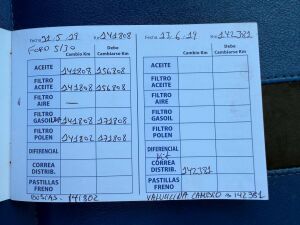 Fecha 21.5.19 Km 141808
FORD 5/30
Cambio Km Debe Cambiarse Km
ACEITE 141808 156808
FILTRO ACEITE 141808 156808
FILTRO AIRE —
FILTRO GASOIL 141808 171808
FILTRO POLEN 141808 171808
DIFERENCIAL
CORREA DISTRIB.
PASTILLAS FRENO
BUGIAS. 141802
Fecha 13.6.19 Km 142381
Cambio Km Debe Cambiarse Km
ACEITE
FILTRO ACEITE
FILTRO AIRE
FILTRO GASOIL
FILTRO POLEN
DIFERENCIAL
Kit
CORREA DISTRIB. 142381
PASTILLAS FRENO
VALVULINA CAMBIO a 142381